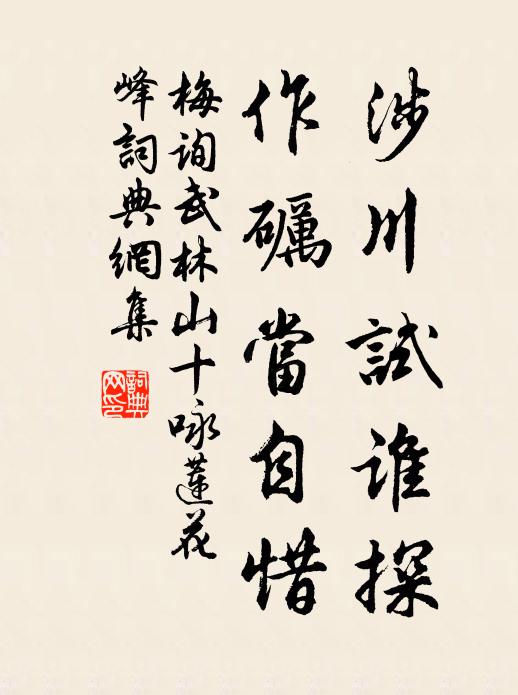 涉川試誰探
作礪當自惜
梅詢武林山十咏蓮花
峰詞典網集
詞典
网印